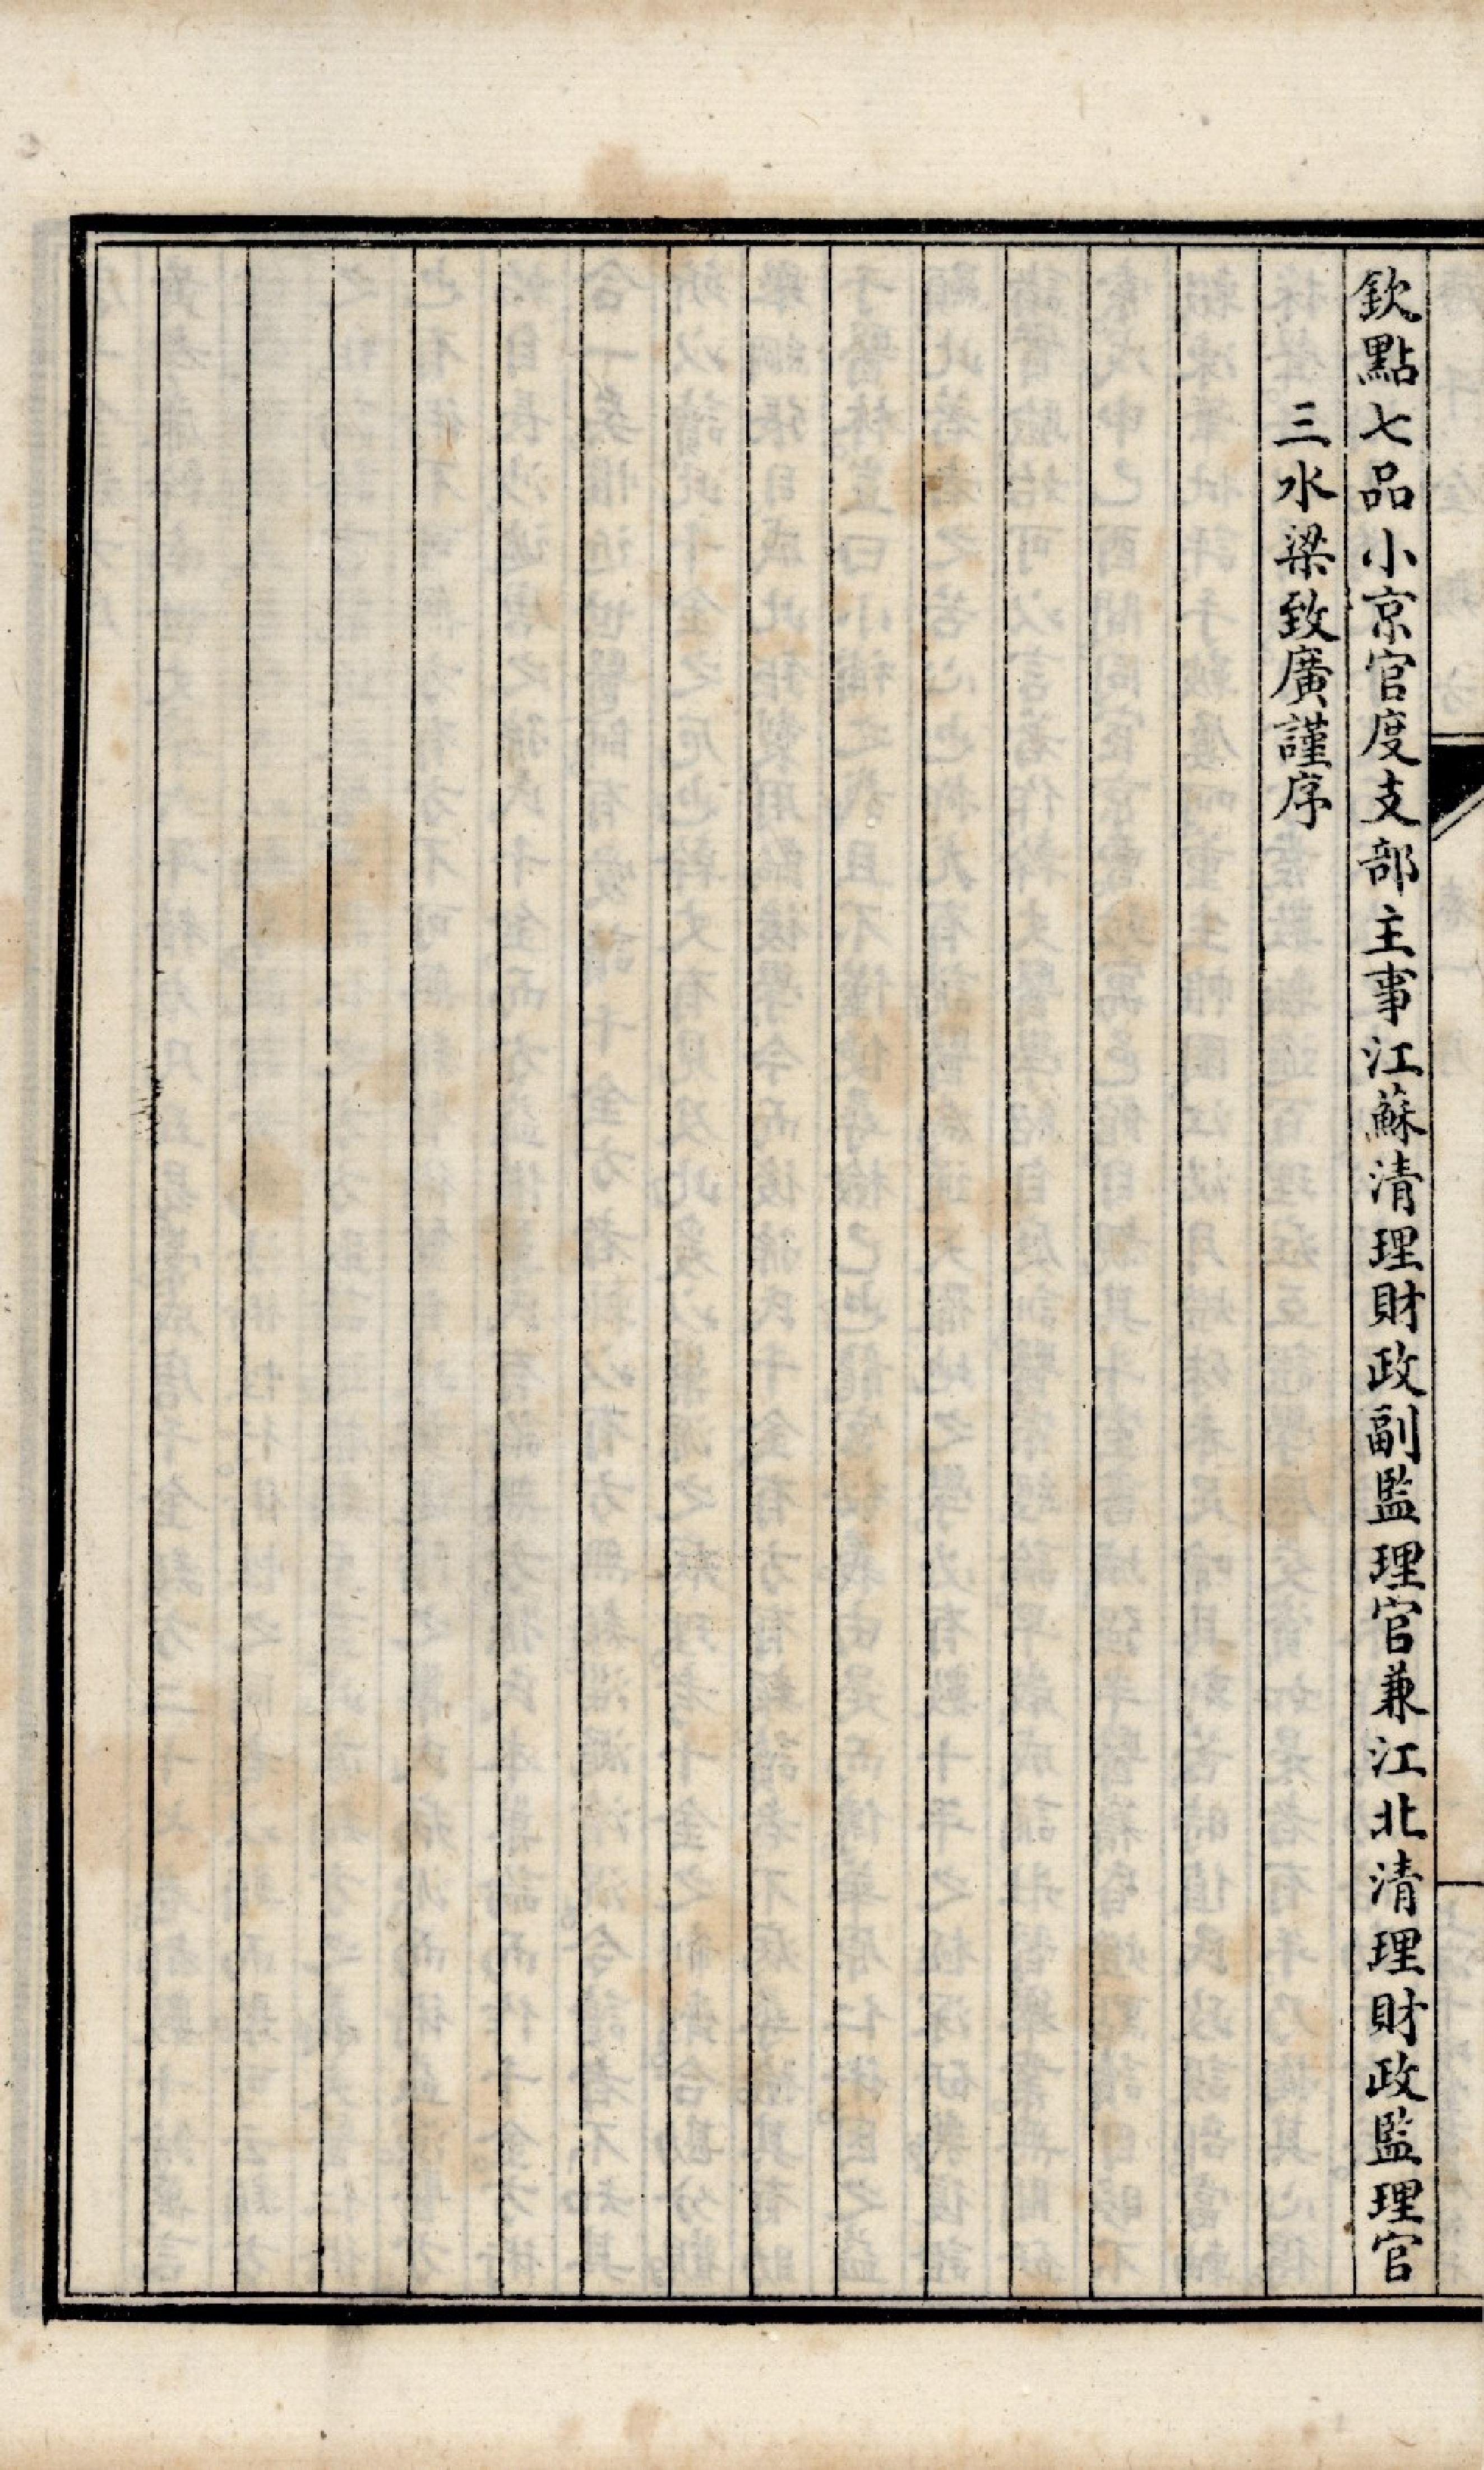 欽點七品小京官度支部主事江蘇清理財政副監理官兼江北清理財政監理官
三水梁致廣謹序